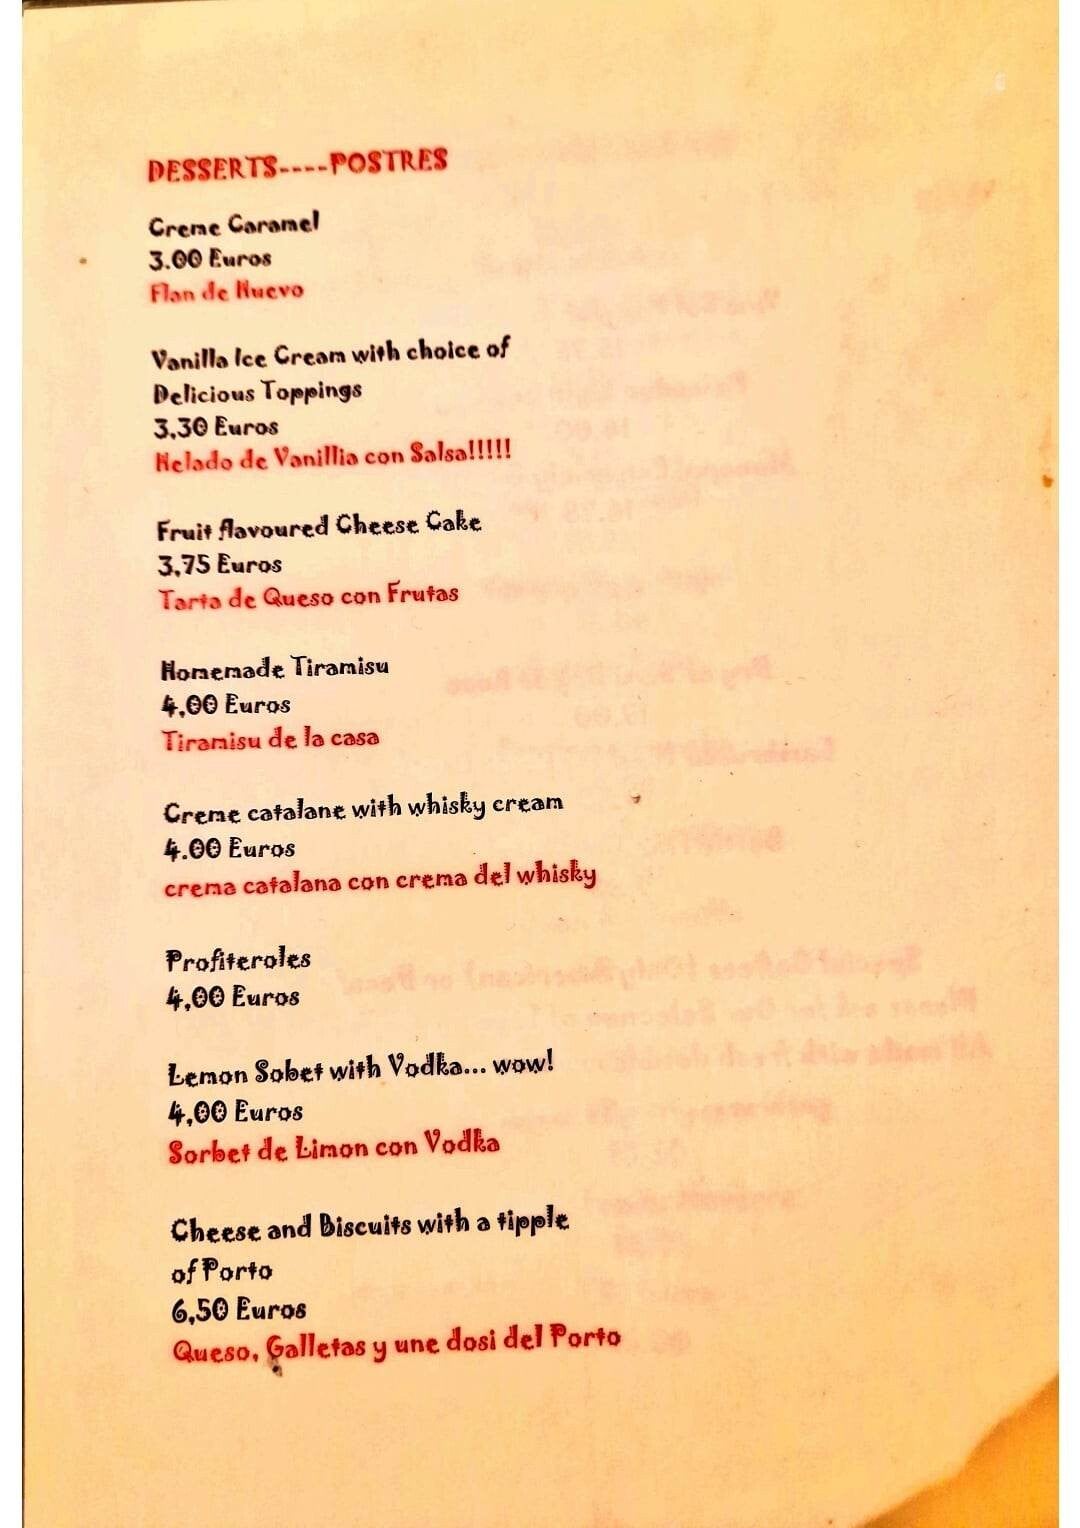 DESSERTS----POSTRES
Creme Caramel
3.00 Euros
Flan de Huevo
Vanilla Ice Cream with choice of
Delicious Toppings
3,30 Euros
Helado de Vanillia con Salsa!!!!!
Fruit flavoured Cheese Cake
3,75 Euros
Tarta de Queso con Frutas
Homemade Tiramisu
4,00 Euros
Tiramisu de la casa
Creme catalane with whisky cream
4.00 Euros
crema catalana con crema del whisky
Profiteroles
4,00 Euros
Lemon Sobet with Vodka... wow!
4,00 Euros
Sorbet de Limon con Vodka
Cheese and Biscuits with a tipple
of Porto
6,50 Euros
Queso, Galletas y une dosi del Porto